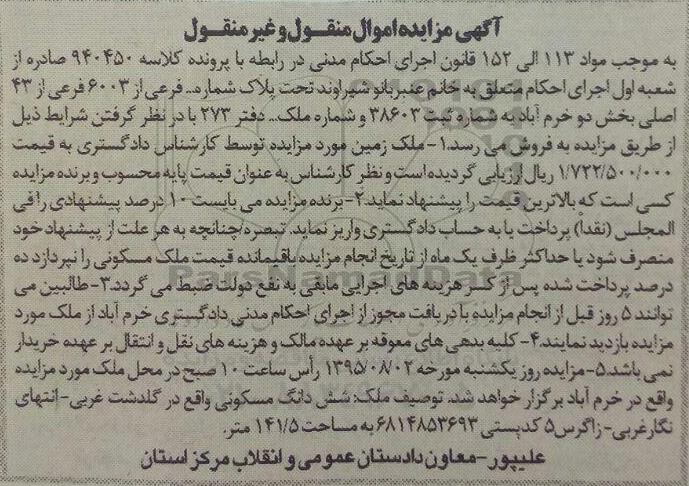 آگهی مزایده اموال منقول و غیر منقول
به موجب مواد ۱۱۳ الی ۱۵۲ قانون اجرای احکام مدنی در رابطه با پرونده کلاسه ۹۴۰۴۵۰ صادره از
شعبه اول اجرای احکام متعلق به خانم عنبربانو شیراوند تحت پلاک شماره.. فرعی از ۶۰۰۳ فرعی از ۴۳
اصلی بخش دو خرم آباد به شماره ثبت ۳۸۶۰۳ و شماره ملک.. دفتر ۲۷۳ با در نظر گرفتن شرایط ذیل
از طریق مزایده به فروش می رسد. ۱- ملک زمین مورد مزایده توسط کارشناس دادگستری به قیمت
۱/۷۲۲/۵۰۰/۰۰۰ ریال ارزیابی گردیده است و نظر کارشناس به عنوان قیمت پایه محسوب و برنده مزایده
کسی است که بالاترین قیمت را پیشنهاد نماید. ۲- برنده مزایده می بایست ۱۰ درصد پیشنهادی را فی
المجلس (نقداً) پرداخت یا به حساب دادگستری واریز نماید. تبصره/چنانچه به هر علت از پیشنهاد خود
منصرف شود یا حداکثر ظرف یک ماه از تاریخ انجام مزایده باقیمانده قیمت ملک مسکونی را نپردازد ده
درصد پرداخت شده پس از کسر هزینه های اجرایی مابقی به نفع دولت ضبط می گردد. ۳- طالبین می
توانند ۵ روز قبل از انجام مزایده با دریافت مجوز از اجرای احکام مدنی دادگستری خرم آباد از ملک مورد
مزایده بازدید نمایند. ۴- کلیه بدهی های معوقه بر عهده مالک و هزینه های نقل و انتقال بر عهده خریدار
نمی باشد. ۵- مزایده روز یکشنبه مورخه ۱۳۹۵/۰۸/۰۲ رأس ساعت ۱۰ صبح در محل ملک مورد مزایده
واقع در خرم آباد برگزار خواهد شد. توصیف ملک: شش دانگ مسکونی واقع در گلدشت غربی- انتهای
نگار غربی- زاگرس ۵ کدپستی ۶۸۱۴۸۵۳۶۹۳ به مساحت ۱۴۱/۵ متر.
علیپور- معاون دادستان عمومی و انقلاب مرکز استان
ParsNamadData